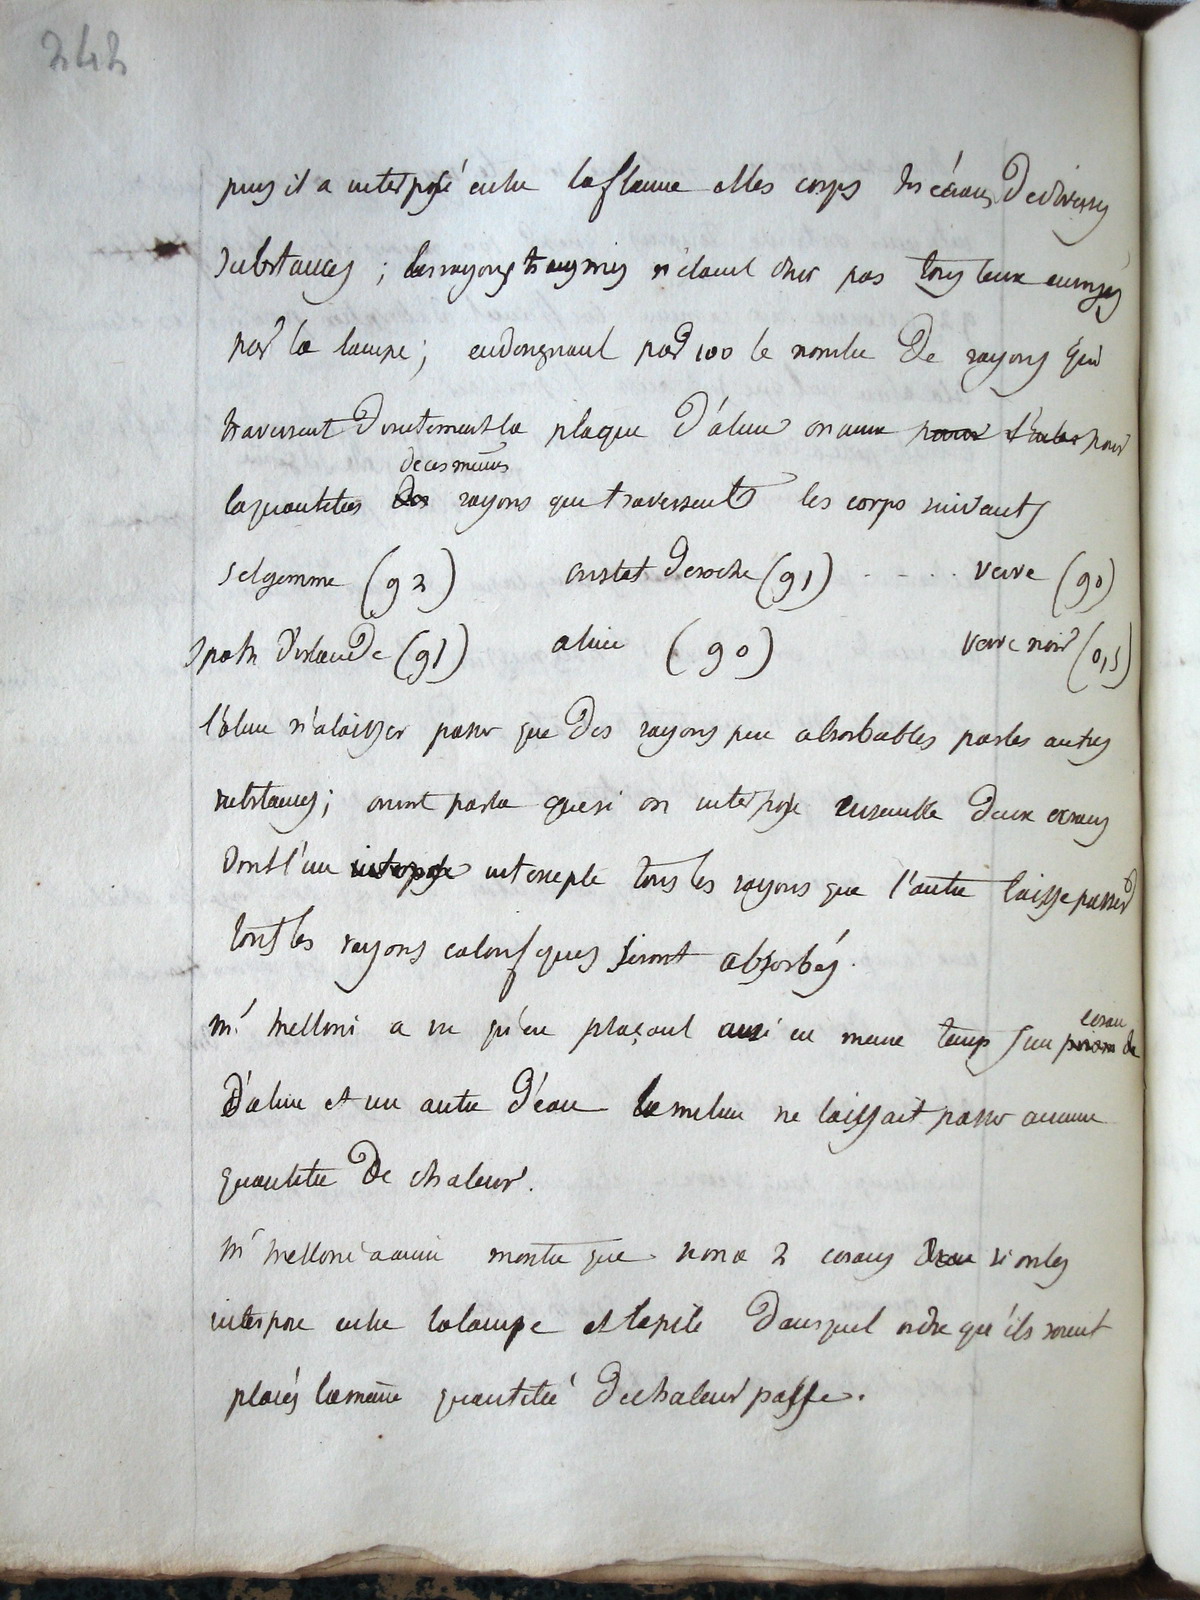 242
puis il a interposé entre la flamme et les corps des écrans de diverses
substances ; les rayons transmis n'étaient donc pas tous ceux envoyés
par la lampe ; en designant par 100 le nombre de rayons qui
traversent directement la plaque d'alun on aura pour
de ces mêmes
la quantitée des rayons qui traversent les corps suivants
sel gemme (92) cristal de roche (91) - - - . verre (90)
spath d'islande (91) alun (90) verre noir (0,5)
l'alun n'a laisser passer que des rayons peu absorbables par les autres
substances ; on voit par la que si on interpose ensemble deux ecrans
dont l'un interpose intercepte tous les rayons que l'autre laisse passer
tous les rayons calorifiques seront absorbés.
mr Melloni a vu qu'en plaçant aussi en meme temps un
écran
d'alun et un autre d'eau le milieu ne laissait passer aucune
quantitée de chaleur.
Mr Melloni a aussi montré que si on a 2 ecrans si on les
interpose entre la lampe et la pile dans quel ordre qu'ils soient
placés la même quantitée de chaleur passe.